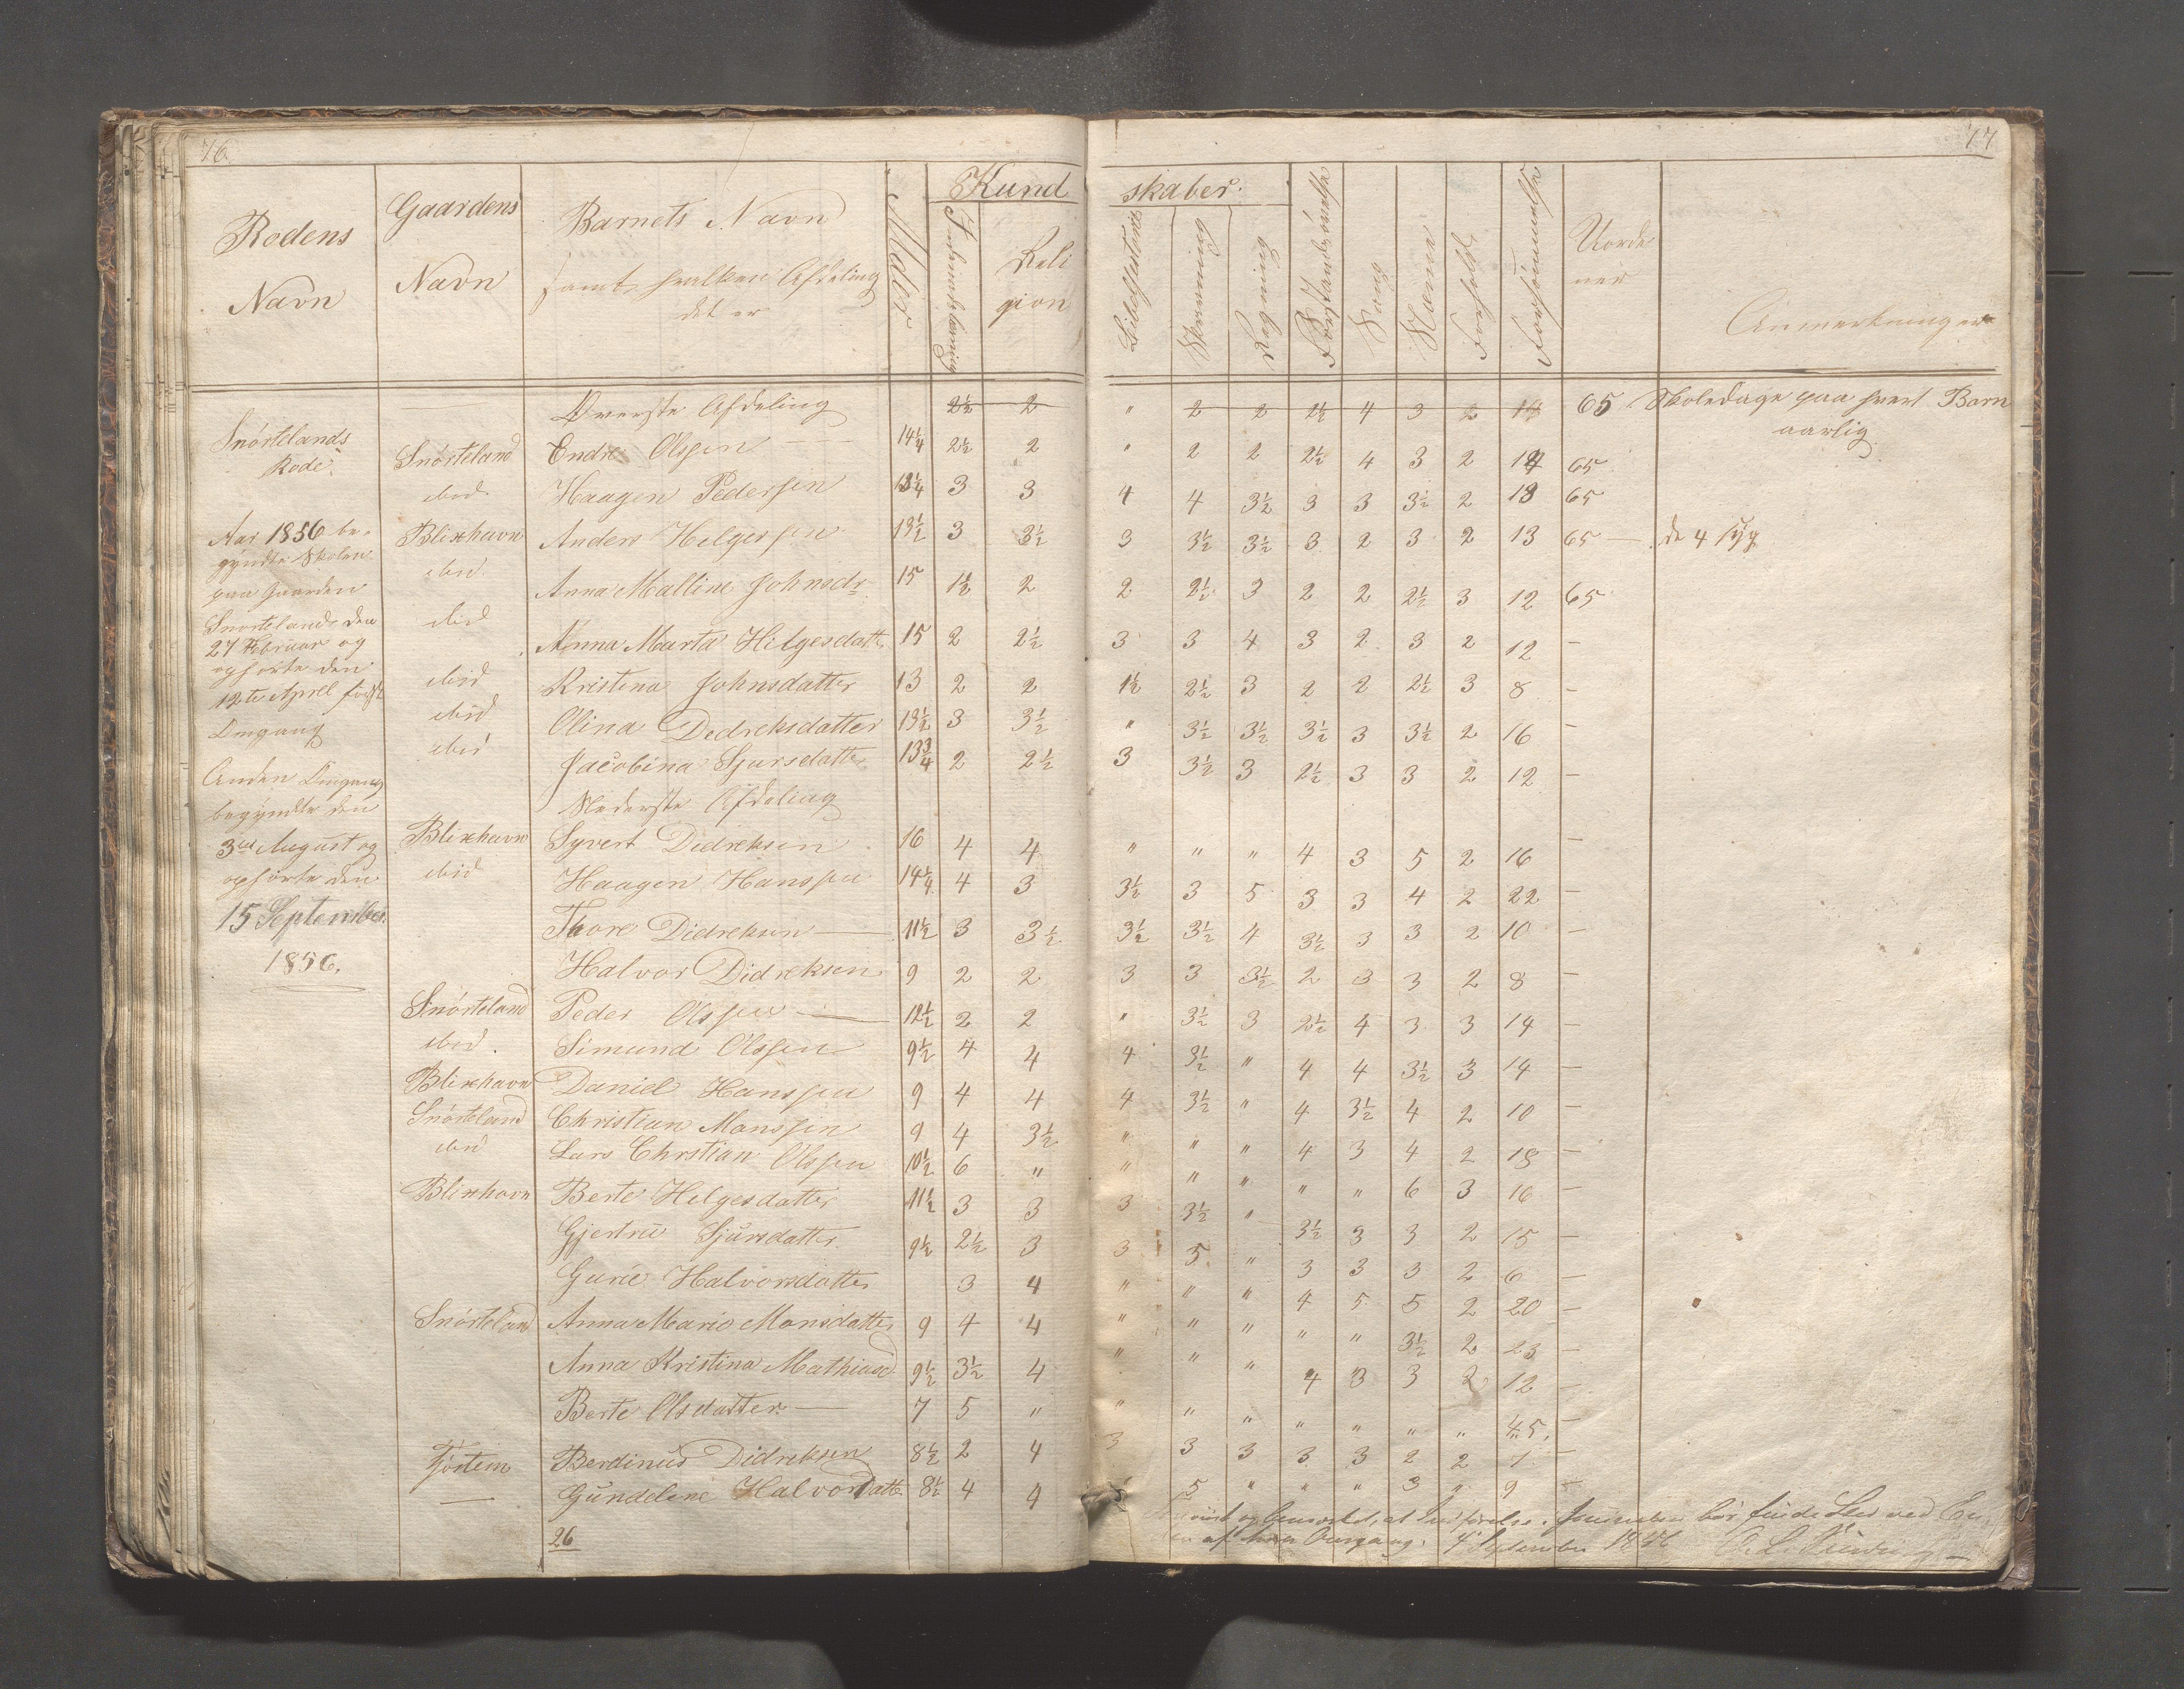 76
77
Rodens Navn
Gaardens Navn
Barnets Navn
samt hvilken Afdeling
det er
Alder
Kundskaber.
Religion
Skrivning
Regning
Sang
Nemme
Forhold
Forsømmelse
Anmerkninger
Øverste Afdeling 2½ 2 " 2 2 2½ 4 3 2 14 65 Skoledage paa hvert Barn
aarlig
Snørtelands
Rode
Snørteland Endre Olssen 14¼ 2½ 2 " 2 2 2½ 4 3 2 14 65
ibid Haagen Pedersen 13¼ 3 3 4 4 3½ 3 3 3½ 2 18 65
Blixhavn Anders Helgessen 13½ 3 3½ 3 3½ 3½ 3 2 3 2 13 65 de 4 syg
ibid Anna Malline Johnsdr. 15 1½ 2 2 2½ 3 2 2 2½ 3 12 65
ibid Anna Marta Helgesdatter 15 2 2½ 3 3 4 3 2 3 2 12 –
ibid Kristena Johnsdatter 13 2 2 1½ 2½ 3 2 2 2½ 3 8 –
ibid Olina Dedreksdatter 13½ 3 3½ " 3½ 3½ 3½ 3 3½ 2 16 –
ibid Jacobina Sjursdatter 13¾ 2 2½ 3 3½ 3 2½ 3 3 2 12 –
Aar 1856 be-
gyndte Skolen
paa Gaarden
Snørteland den
27 Februar og
ophørte den
12te April første
Omgang
Anden Omgang
begyndte den
3die August og
ophørte den
15 September
1856.
Nederste Afdeling
Blixhavn Syvert Didreksen 16 4 4 " " " 4 3 5 2 16 –
ibid Haagen Hanssen 14¼ 4 3 3½ 3 5 3 3 4 2 22 –
Thore Didreksen 11½ 3 3½ 3½ 3½ 4 3½ 3 3 2 10 –
Halvor Didreksen 9 2 2 3 3 3½ 2 3 3 2 8 –
Snørteland Peder Olssen 12½ 2 2 " 3½ 3 2½ 4 3 3 14 –
ibid Simund Olssen 9½ 4 4 4 3½ " 4 4 3½ 3 14 –
Blixhavn Daniel Hanssen 9 4 4 4 3½ " 4 3½ 4 2 10 –
Snørteland Christian Monssen 9 4 3½ " " " 4 3 4 2 18 –
ibid Lars Chrstian Olssen 10½ 6 " " " " " " 6 3 16 –
Blixhavn Berte Helgesdatter 11½ 3 3 3 3½ " 3½ 3 3 2 15 –
Gjertru Sjursdatter 9½ 2½ 3 3 5 " 3 3 3 2 6 –
Gurie Halvorsdatter 3 4 " " " 4 5 5 2 20 –
Snørteland Anna Marie Monsdatter 9 4 4 " " " " " 3½ 2 23 –
Anna Kristina Mathiasd 9½ 3½ 4 " " " 4 3 3 2 12 –
Berte Olsdatter 7 5 " " " " " " " " 45. –
Tøstem Berdinus Didreksen 8½ 2 4 3 3 3 3 3 2 2 1 –
Gundeline Halvorsdatte 8½ 4 4 5 " " " 3 " 9 –
26
bør finde Sted ved
af hver Omgang. 4 September 1856